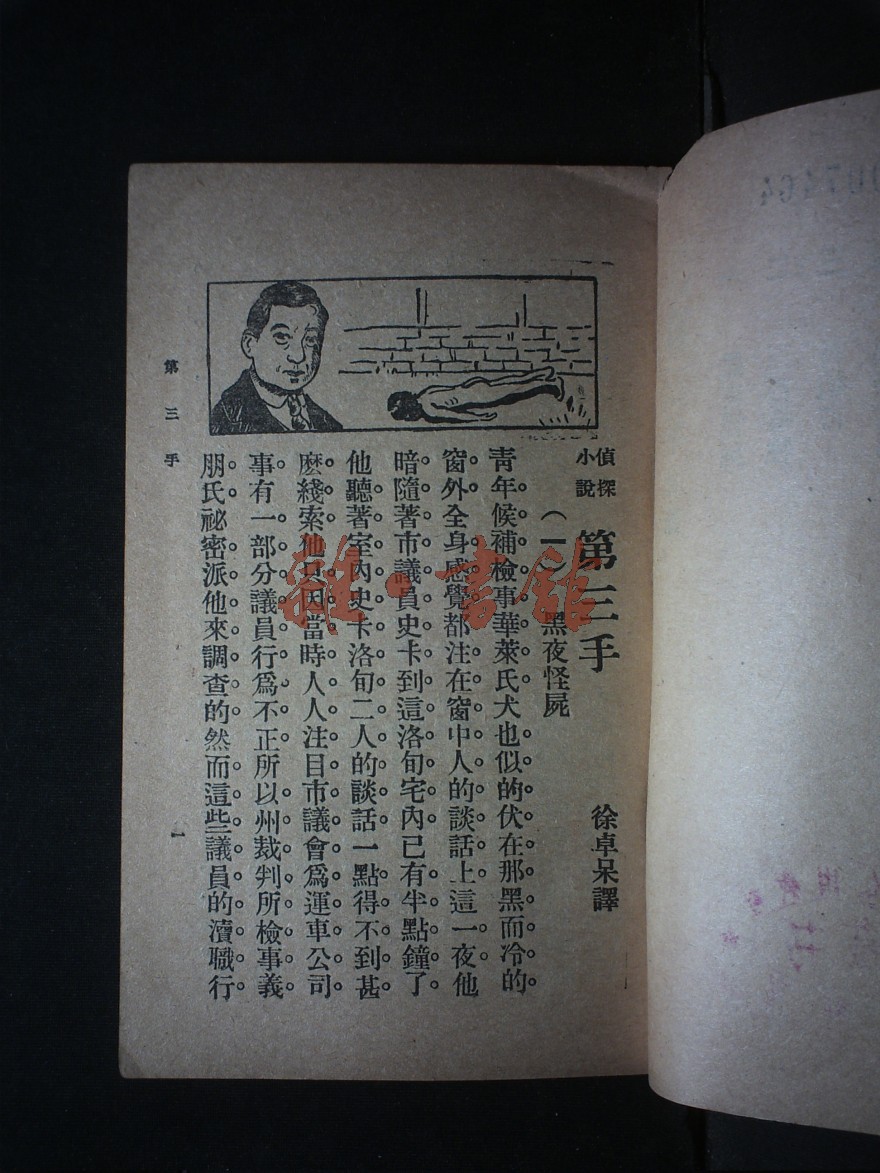 偵探
小說
第三手
徐卓呆譯
(一)黑夜怪屍
青年候補檢事華萊氏犬也似的伏在那黑而冷的
窗外。全身感覺都注在窗中人的談話上。這一夜。他
暗隨著市議員史卡到這洛旬宅內。已有半點鐘了。
他聽著室內史卡洛旬二人的談話。一點得不到甚
麽綫索。他只因當時人人注目市議會爲運車公司
事。有一部分議員行爲不正。所以州裁判所檢事義
朋氏。祕密派他來調查的。然而這些議員的瀆職行
第三手
一
雜·書館